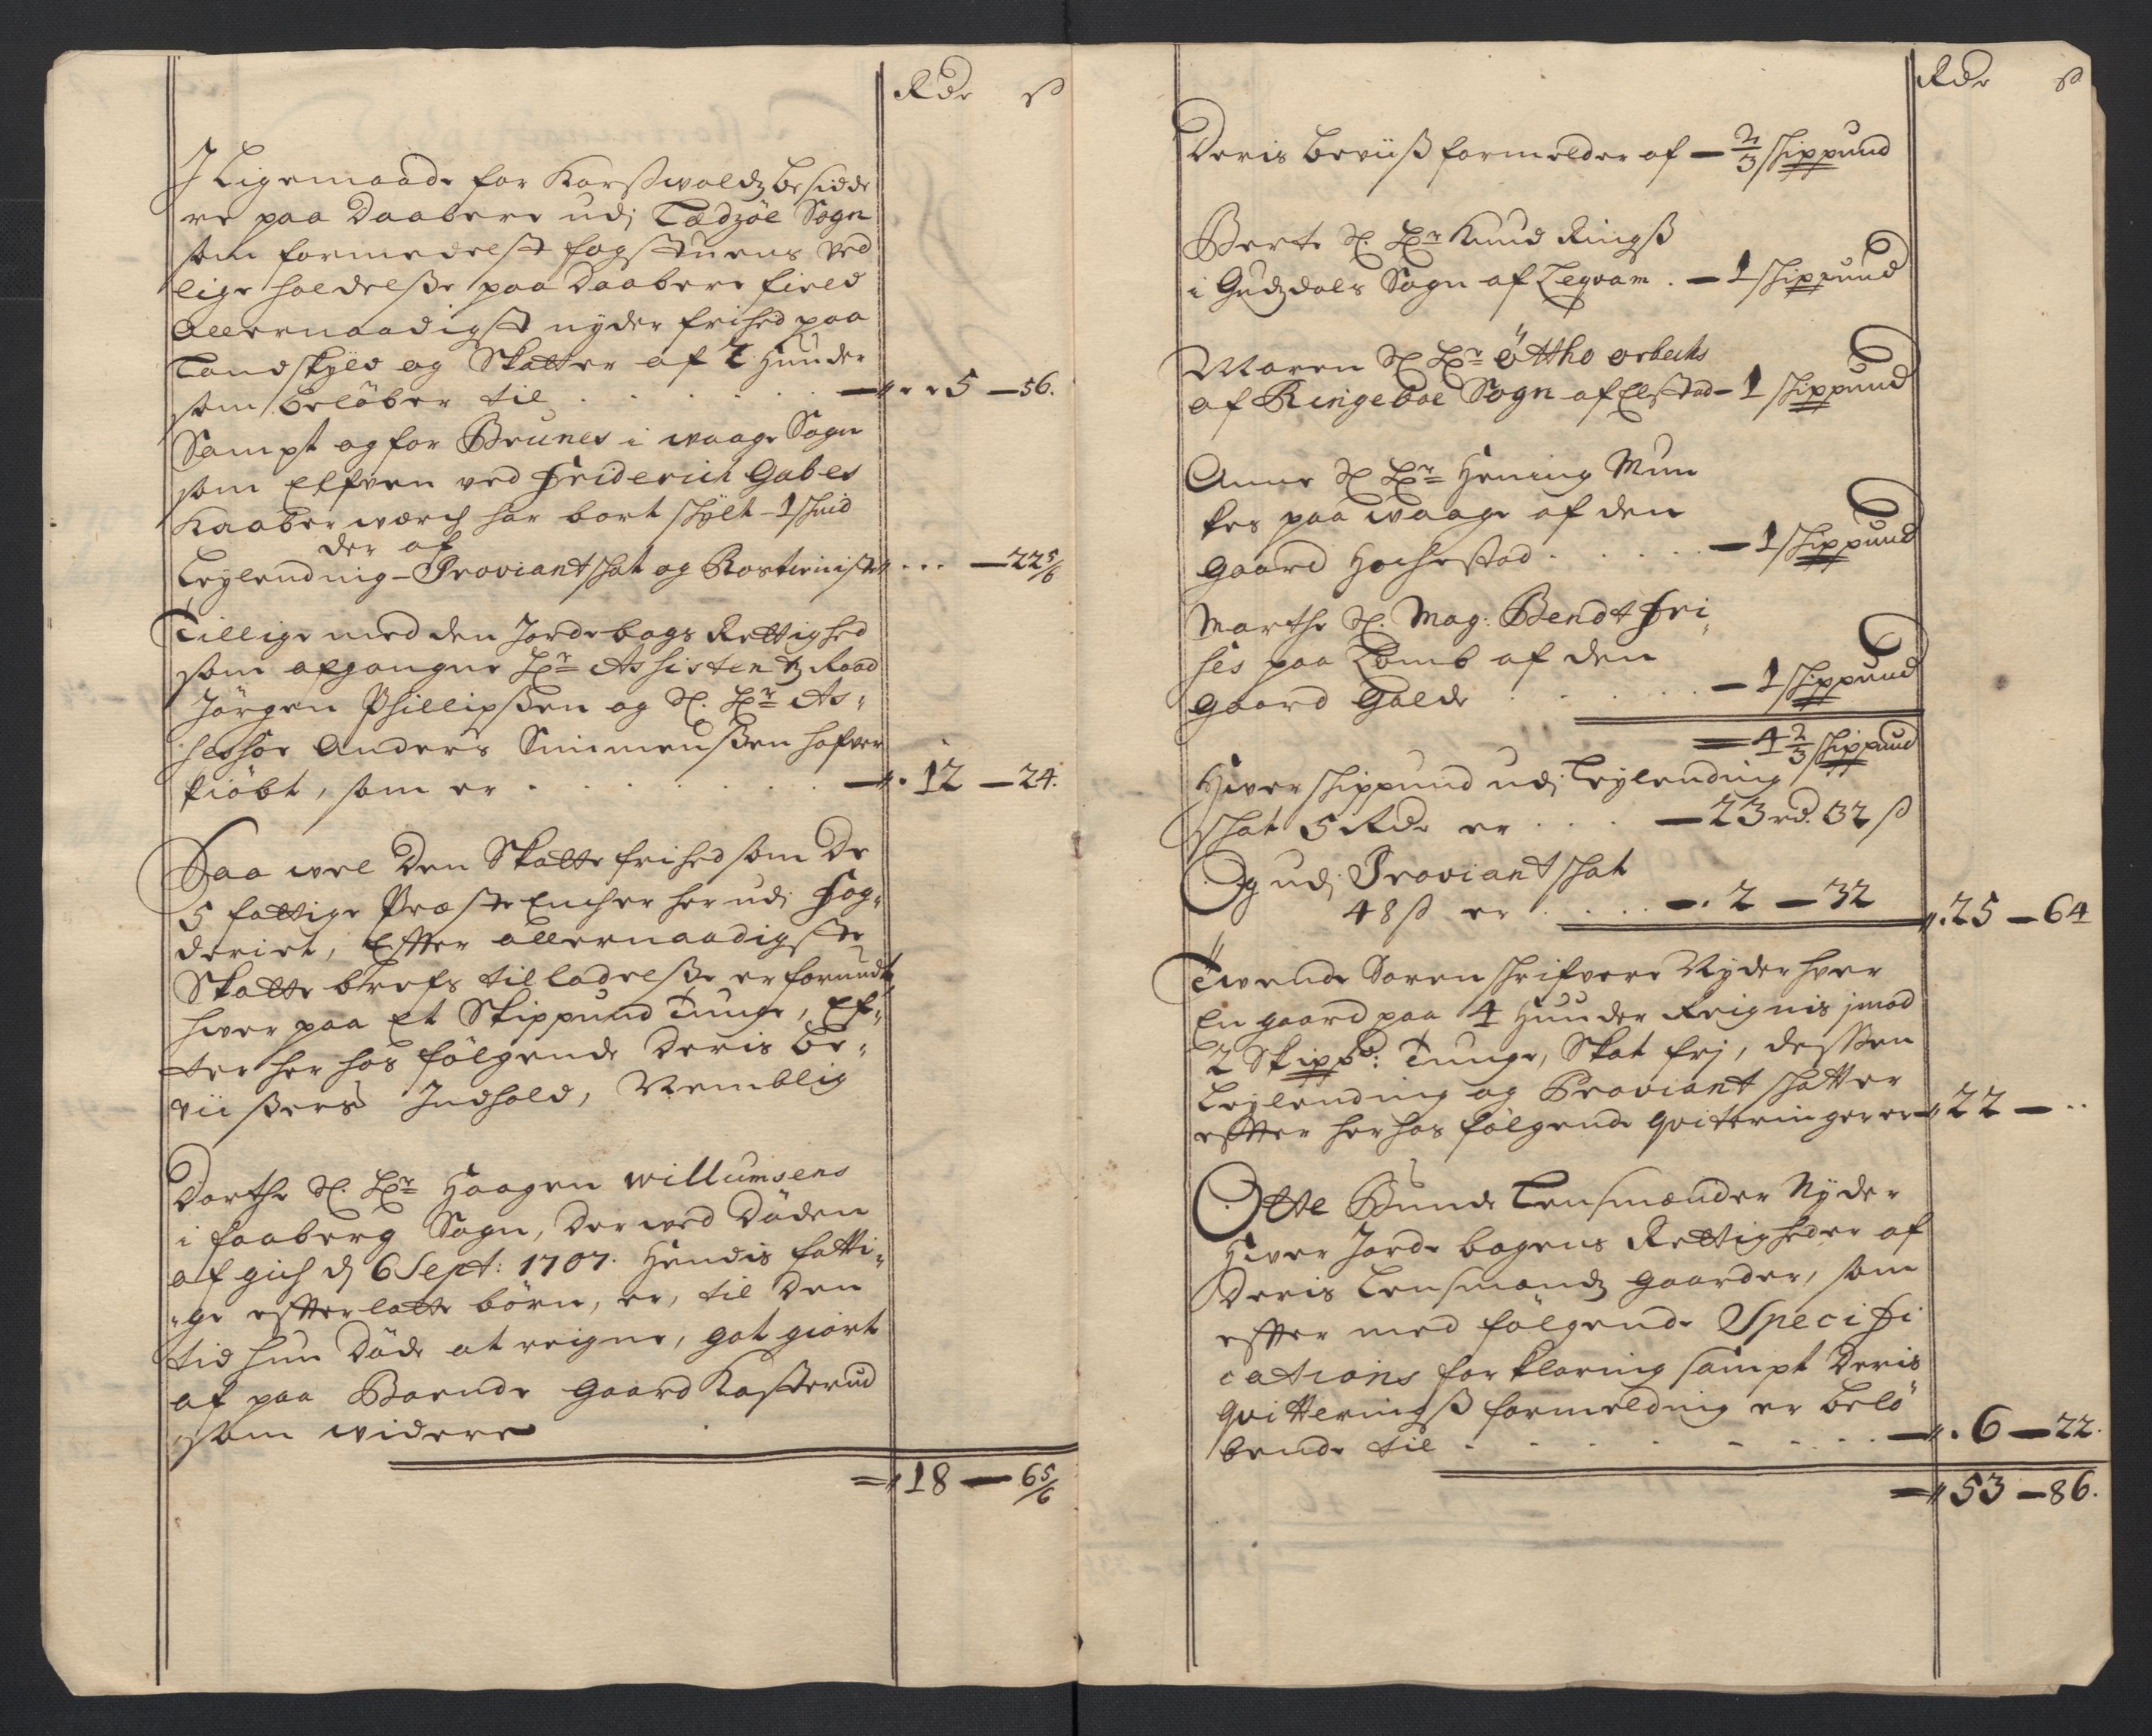 Rdr ß
I Ligemaade for Korßwoldz besidde
re paa Daabere udj Tædzöe Sogn
som formedelst fogstuens ved
lige holdelße paa Daabere field
allernaadigst nyder frihed paa
Landskyld og Skatter af 2 Hunder
som beløber til . . . . . . 5 – 56.
Sampt og for Brunes i Waage Sogn
som Elfven ved Friderich Gabes
Kaaber werch har bort schylt – 1 Huid
der af
Leylending – Proviant schat og Rostieniste . . . – 22 5/6
Tillige med den Jordebogs Rettighed
som afgangne Hr Assistendtz Raad
Jörgen Phillipßen og Sl. Hr As,
sessor Anders Simmenßen hafver
kiöbt, som er . . . . . . . 12 – 24.
Saa wel Den Skatte frihed som De
5 fattige Præste Encher her udj Fog,
deriet, Effter allernaadigste
Skatte brefs tilladelße er forundt,
hver paa Et Skippund Tunge, Ef,
ter her hos fölgende Deris Be,
viißers Indhold, Nemblig
Dorthe Sl. Hr Haagen Willumsens
i Faaberg Sogn, Der wed Döden
af gich d 6 Sept: 1707. Hendis fatti,
ge effterlatte börn, er, til Den
tid hun Döde at reigne, got giort
af paa Boende Gaard Kasterud
som widere
18 – 6 5/6
Rdr ß
Deris beviiß formelder af – 2/3 Skippund
Berte Sl. Hr Knud Ringß
i Gudzdals Sogn af Legvam . – 1 Skippund
Maren Sl Hr Ottho Orbechs
af Ringeboe Sogn af Elstad – 1 Skippund
Anne Sl Hr Hening Mun
kes paa Waage af den
Gaard Hochestad . . . . . – 1 Skippund
Marthe Sl. Mag: Bendt Fri,
ses paa Lomb af den
Gaard Galde . . . . . . – 1 Skippund
4 2/3 Skippund
Hver Skippund udj Leylending
Schat 5 Rdr er . . . – 23 rd. 32 ß
Og udj Proviant schat
48 ß er . . . . . 2 – 32 25 – 64
Tvende Soren schrifvere Nyder hver
En gaard paa 4 Hunder Reignis imod
2 Skippd: Tunge, Skat frj, desßen
Leylending og Proviant schatter
effter her hos fölgende qviteringer er 22 – . .
Otte Bunde Lensmænder Nyder
Hver Jorde bogens Rettigheder af
Deris Lensmandz gaarder, som
effter med fölgende Specifi
cations forklaring sampt Deris
qvitteringß formelding er belö
bende til . . . . . . . . 6 – 22.
53 – 86.